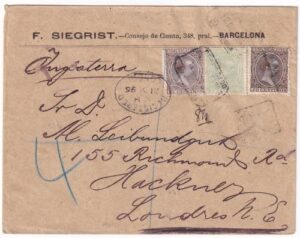 F. SIEGRIST. — Consejo de Ciento, 348, pral. — BARCELONA
Ynglaterra
Sr D.
M. Leibundgut
155 Richmond Rd
Hackney
Londres N. E